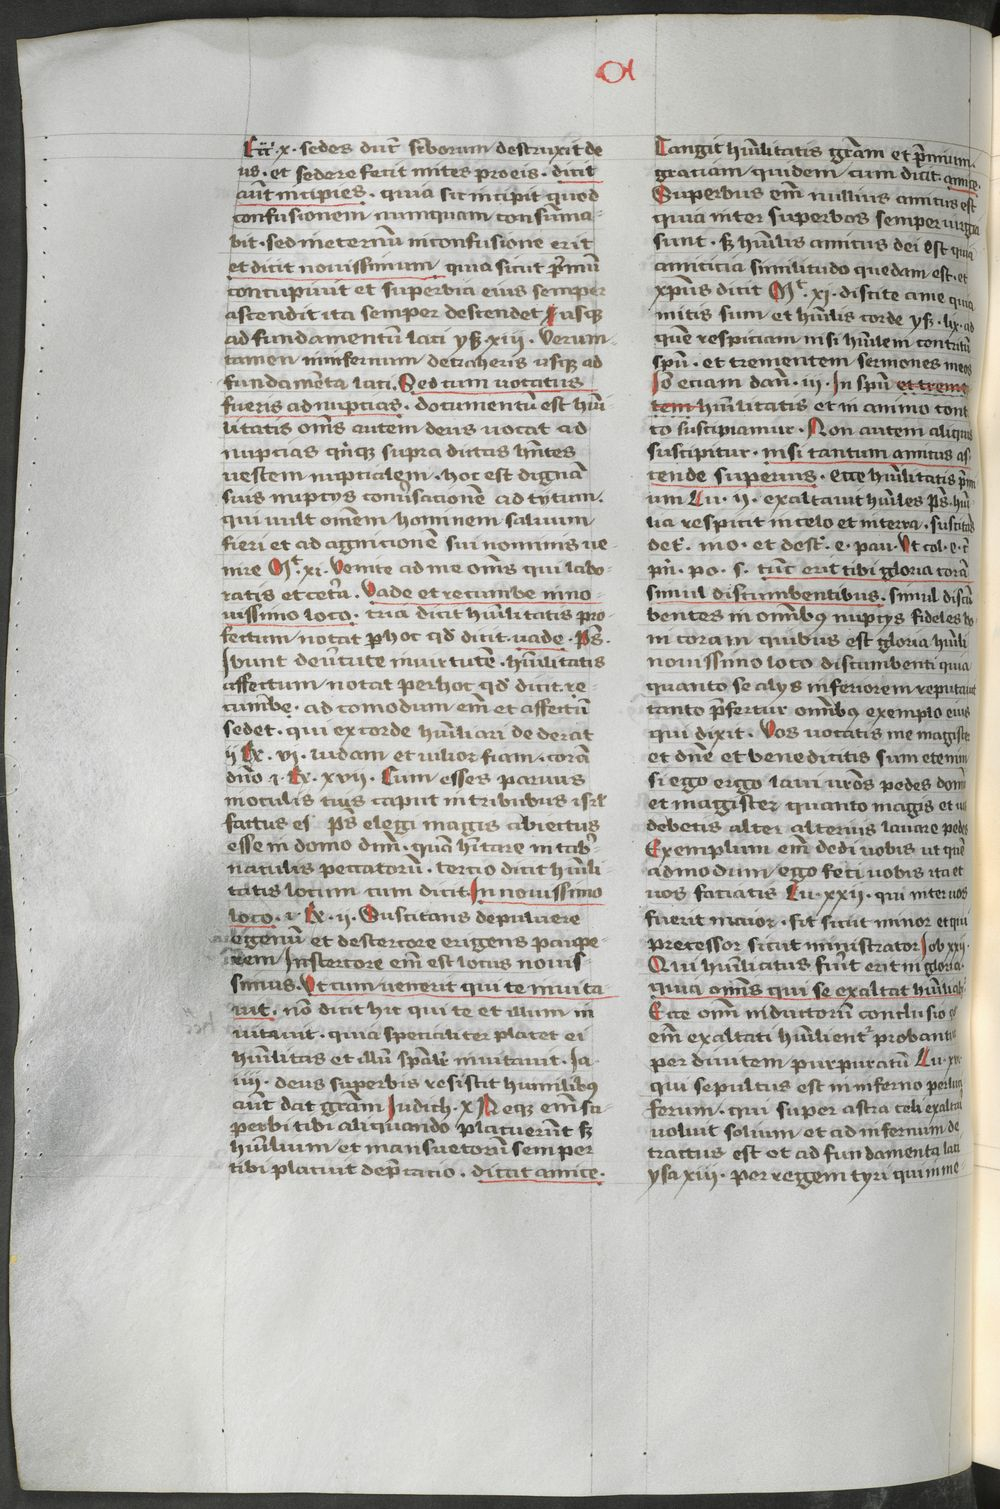 Ecc̄i · x · sedes duc̄ sb̄orum destruxit de
us · et sedere fecit mites pro eis · dicit
aūt incipies · quia sic incipit quod
confusionem nunquam consūma-
bit · sed in eternū in confusione erit
et dicit novissimum · quia sicut p̄mū
concupivit et superbia eius semper
ascendit ita semper descendet usq̨
ad fundamentum laci ysᷓ · xiii · Verum
tamen in infernum detraheris usq̨ ad
fundamēta laci. Sed cum vocatus
fueris ad nuptias · documentū est hūi
litatis om̄s autem deus vocat ad
nuptias q̄nq̨ supra dictas hn̄tes
vestem nuptialem · hoc est dignā
suis nuptys con̄vsacionē ad tytum.
qui vult om̄em hominem salvum
fieri et ad agnicionē sui nominis ve
nire Mͭ · xi · Venite ad me om̄s qui labo-
ratis et cet̄a . Vade et recumbe in no-
vissimo loco · tria dicit hūilitatis pro-
fectum notat p hoc qd̄ dicit vade · ps̄ ·
Ibunt de v̄tute in virtutē · hūilitatis
affectum notat per hoc qd̄ dicit re-
cumbe · ad comodum em̄ et affectū
sedet · qui ex corde hūiliari de derat
ii Rͤ · vi · ludam et vilior fiam · corā
dn̄o i · Rͤ · xvii · Cum esses parvus
in oculis tuis caput in tribubus isrl̄
factus es ps̄ elegi magis abiectus
esse in domo dn̄i · quā hītare in tab̄
naculis peccatorū · tercio dicit hūili
tatis locum cum dicit · In novissimo
loco · i Rͤ · ii · Suscitans de pulvere
egenū et de stercore erigens paupe-
rem In stercore em̄ est locus novis-
simus. Ut cum venerit qui te invita
vit · nō dicit hic qui te et illum in
vitavit · quia specialiter placet ei
hūilitas et illū sp̄alit̄ invitavit · Ja ·
iiii · deus superbis resistit humilibꝰ
aūt dat grām Judich · x Neq̨ em̄ su
perbi tibi aliquando placuerūt sꝫ
hūilium et mansuetorū semper
tibi placuit dep̄catio · dicat amice ·
Tangit hūilitatis grām et p̄mium ·
graciam quidem cum dicit · amice ·
Superbus em̄ nullius amicus est
quia inter superbos semper iurgia
sunt · sꝫ hūilis amicus dei est quia
amicitia similitudo quedam est · et
xp̄us dicit Mͭ · xi · discite a me quia
mitis sum et hūilis corde ysᷓ · lix · ad
quē respiciam nisi hūilem contritū
spū · et trementem sermones meos
Io etiam dan̄ · iii · In spū et treme
tem hūilitatis et in animo cont
to suscipiamur · Non autem aliquis
suscipitur · nisi tantum amicus as-
cende superius · ecce hūilitatis p̄mi
um Lu · ii · exaltavit hūiles ps̄ · hūi
lia respicit in celo et in terra · suscitās
de t̄ · ino · et dest̄ · e · pau · Ut col · e · c̄
pn̄ · po · s · tūc erit tibi gloria corā
simul discumbentibus · simul discū
bentes in om̄ibus nuptys fideles bo-
ni coram quibus est gloria hūili
novissimo loco discumbenti quia
quanto se alys inferiorem reputavit
tanto p̄fertur om̄ibus exemplo eius
qui dixit · Vos vocatis me magister
et dn̄e et bene dicitis sum etenim
si ego ergo lavi vr̄os pedes domi
et magister quanto magis et vos
debetis alter alterius lavare pedes
Exemplum em̄ dedi vobis ut quē
admodum ego feci vobis ita et
vos faciatis Lu · xxii · qui inter vos
fuerit maior · fit sicut minor et qui
precessor sicut ministrator Job xxii ·
Qui hūiliatus fūit erit in gloria ·
quia omnis qui se exaltat hūiliab
Ecce om̄ inductorū conclusio
em̄ exaltati hūilient̄ probantur
per divitem purpuratū Lu · xvi
qui sepultus est in inferno per luci
ferum · qui super astra celi exaltare
voluit solium et ad infernum de
tractus est et ad fundamenta laci
ysa xiii · per regem tyri qui in me-